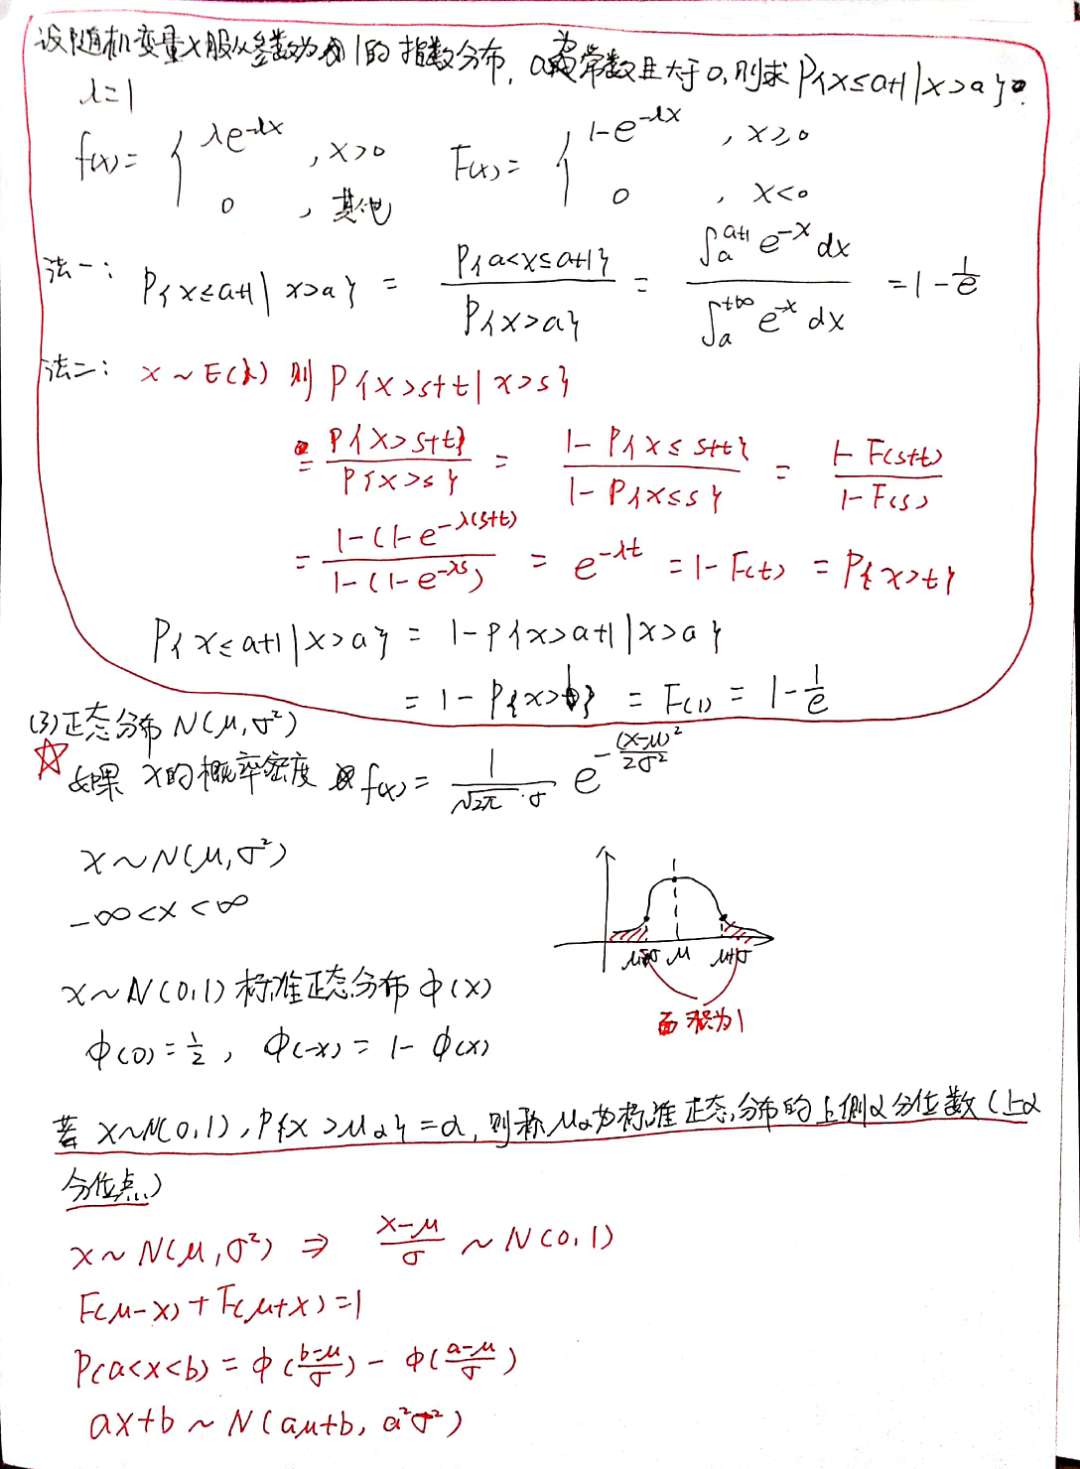 设随机变量X服从参数为1的指数分布,a为常数且大于0,则求P{X≤a+1|X>a}。
λ=1
f(x)= { λe^{-λx} , x>0 ; 0 , 其他    F(x)= { 1-e^{-λx} , x≥0 ; 0 , x<0
法一: P{X≤a+1|X>a} = P{a<X≤a+1} / P{X>a} = ∫_a^{a+1} e^{-x} dx / ∫_a^{+∞} e^{-x} dx = 1 - 1/e
法二: X~E(λ) 则 P{X>s+t|X>s}
= P{X>s+t} / P{X>s} = (1-P{X≤s+t}) / (1-P{X≤s}) = (1-F(s+t)) / (1-F(s))
= (1-(1-e^{-λ(s+t)})) / (1-(1-e^{-λs})) = e^{-λt} = 1-F(t) = P{X>t}
P{X≤a+1|X>a} = 1-P{X>a+1|X>a}
= 1-P{X>1} = F(1) = 1-1/e
(3)正态分布 N(μ,σ²)
☆ 如果 X的概率密度 f(x) = 1/(√2π·σ) e^{-(x-μ)²/2σ²}
X~N(μ,σ²)
-∞<x<∞
μ-σ μ μ+σ
面积为1
X~N(0,1)标准正态分布 φ(x)
φ(0)=1/2, φ(-x)=1-φ(x)
若 X~N(0,1),P{X>μα}=α,则称μα为标准正态分布的上侧α分位数(上α
分位点)
X~N(μ,σ²) ⇒ (X-μ)/σ ~N(0,1)
F(μ-x)+F(μ+x)=1
P(a<X<b)=φ((b-μ)/σ)-φ((a-μ)/σ)
aX+b~N(aμ+b, a²σ²)